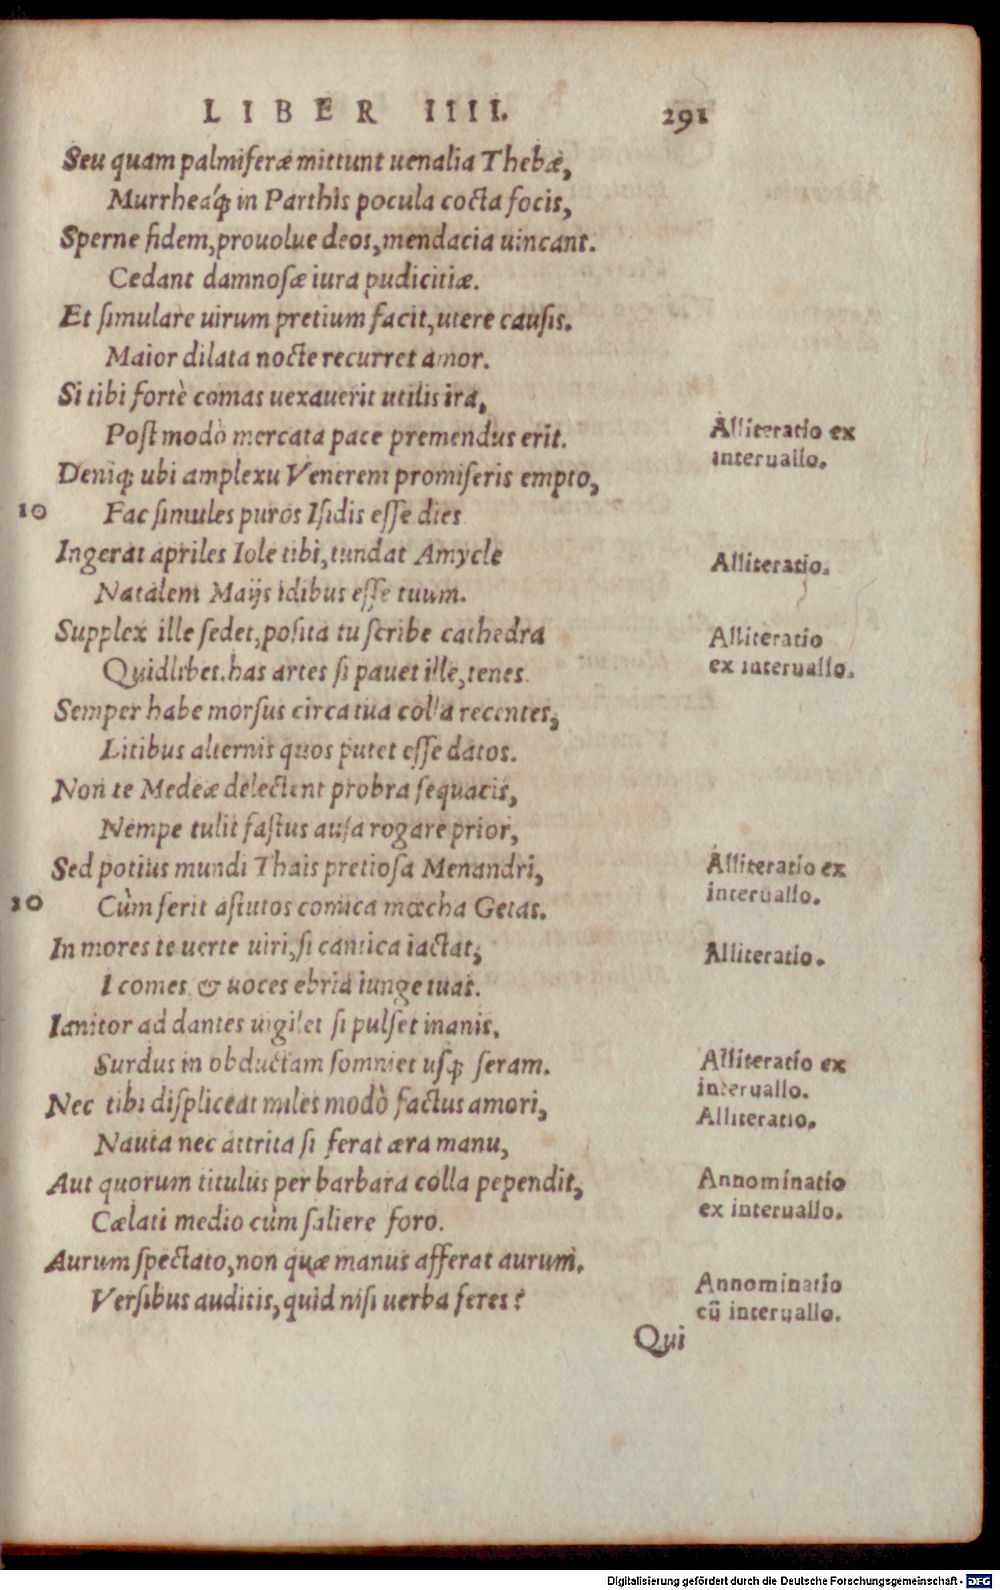 LIBER IIII. 291
Seu quam palmiferæ mittunt uenalia Thebæ,
Murrheáq; in Parthis pocula cocta focis,
Sperne fidem, prouolue deos, mendacia uincant.
Cedant damnosæ iura pudicitiæ.
Et simulare uirum pretium facit, utere causis.
Maior dilata nocte recurret amor.
Si tibi fortè comas uexauerit utilis ira,
Post modò mercata pace premendus erit.
Alliteratio ex
interuallo.
Deniq; ubi amplexu Venerem promiseris empto,
10 Fac simules puros Isidis esse dies
Ingerat apriles Iole tibi, tundat Amycle
Alliteratio.
Natalem Maijs idibus esse tuum.
Supplex ille sedet, posita tu scribe cathedra
Alliteratio
Quidlibet. has artes si pauet ille, tenes.
ex interuallo.
Semper habe morsus circa tua colla recentes,
Litibus alternis quos putet esse datos.
Non te Medeæ delectent probra sequacis,
Nempe tulit fastus ausa rogare prior,
Sed potius mundi Thais pretiosa Menandri,
Alliteratio ex
interuallo.
20 Cùm ferit astutos comica mœcha Getas.
In mores te uerte uiri, si cantica iactat;
Alliteratio.
I comes & uoces ebria iunge tuas.
Ianitor ad dantes uigilet si pulset inanis,
Surdus in obductam somniet usq; seram.
Alliteratio ex
interuallo.
Nec tibi displiceat miles modò factus amori,
Alliteratio.
Nauta nec attrita si ferat æra manu,
Aut quorum titulus per barbara colla pependit,
Annominatio
ex interuallo.
Cælati medio cùm saliere foro.
Aurum spectato, non quæ manus afferat aurum.
Annominatio
Versibus auditis, quid nisi uerba feres?
cū interuallo.
Qui
Digitalisierung gefördert durch die Deutsche Forschungsgemeinschaft - DFG